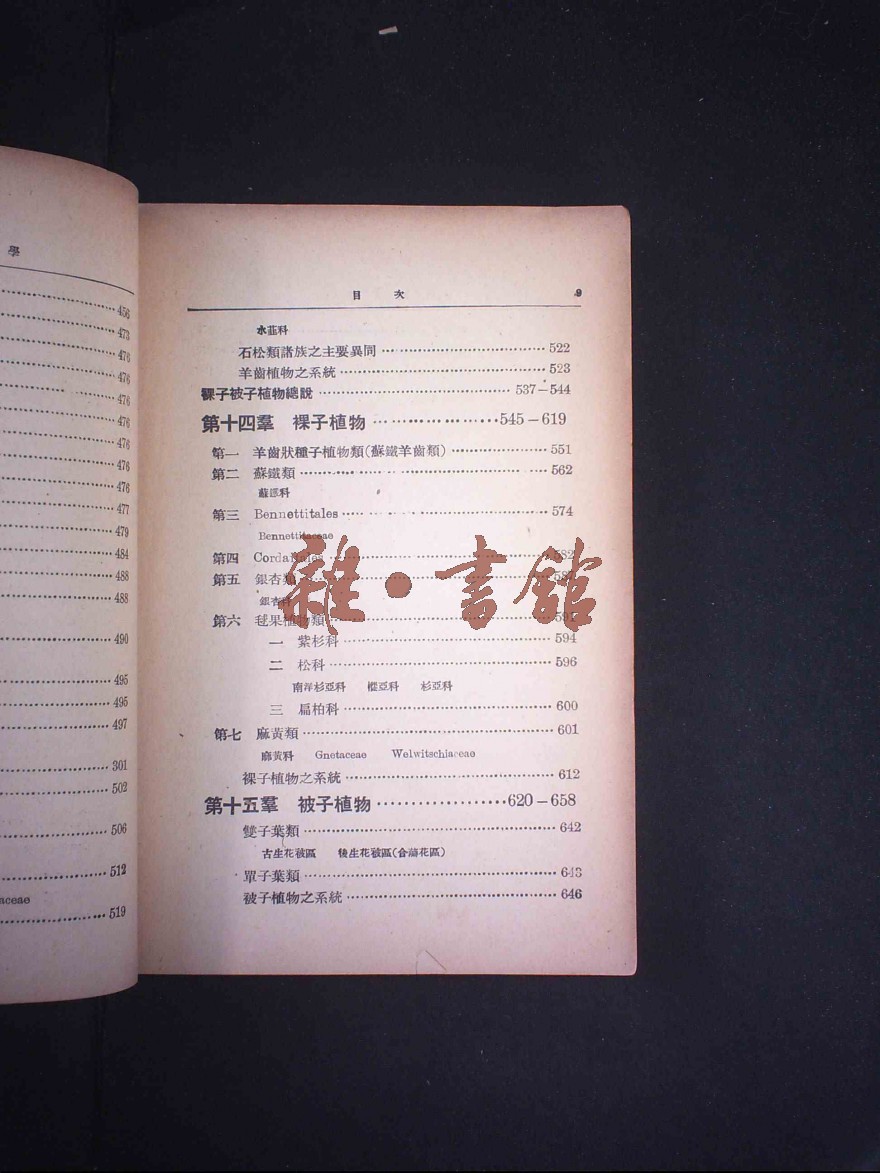 學
456
473
476
476
476
476
476
476
476
477
479
484
488
488
490
495
495
497
301
502
506
512
aceae
519
目 次 9
水韭科
石松類諸族之主要異同 522
羊齒植物之系統 523
裸子被子植物總說 537—544
第十四羣 裸子植物 545—619
第一 羊齒狀種子植物類(蘇鐵羊齒類) 551
第二 蘇鐵類 562
蘇鐵科
第三 Bennettitales 574
Bennettitaceae
第四 Cordaitales 582
第五 銀杏類
銀杏科
第六 毬果植物類 591
一 紫杉科 594
二 松科 596
南洋杉亞科 樅亞科 杉亞科
三 扁柏科 600
第七 麻黃類 601
麻黃科 Gnetaceae Welwitschiaceae
裸子植物之系統 612
第十五羣 被子植物 620—658
雙子葉類 642
古生花被區 後生花被區(合瓣花區)
單子葉類 643
被子植物之系統 646
雜·書館